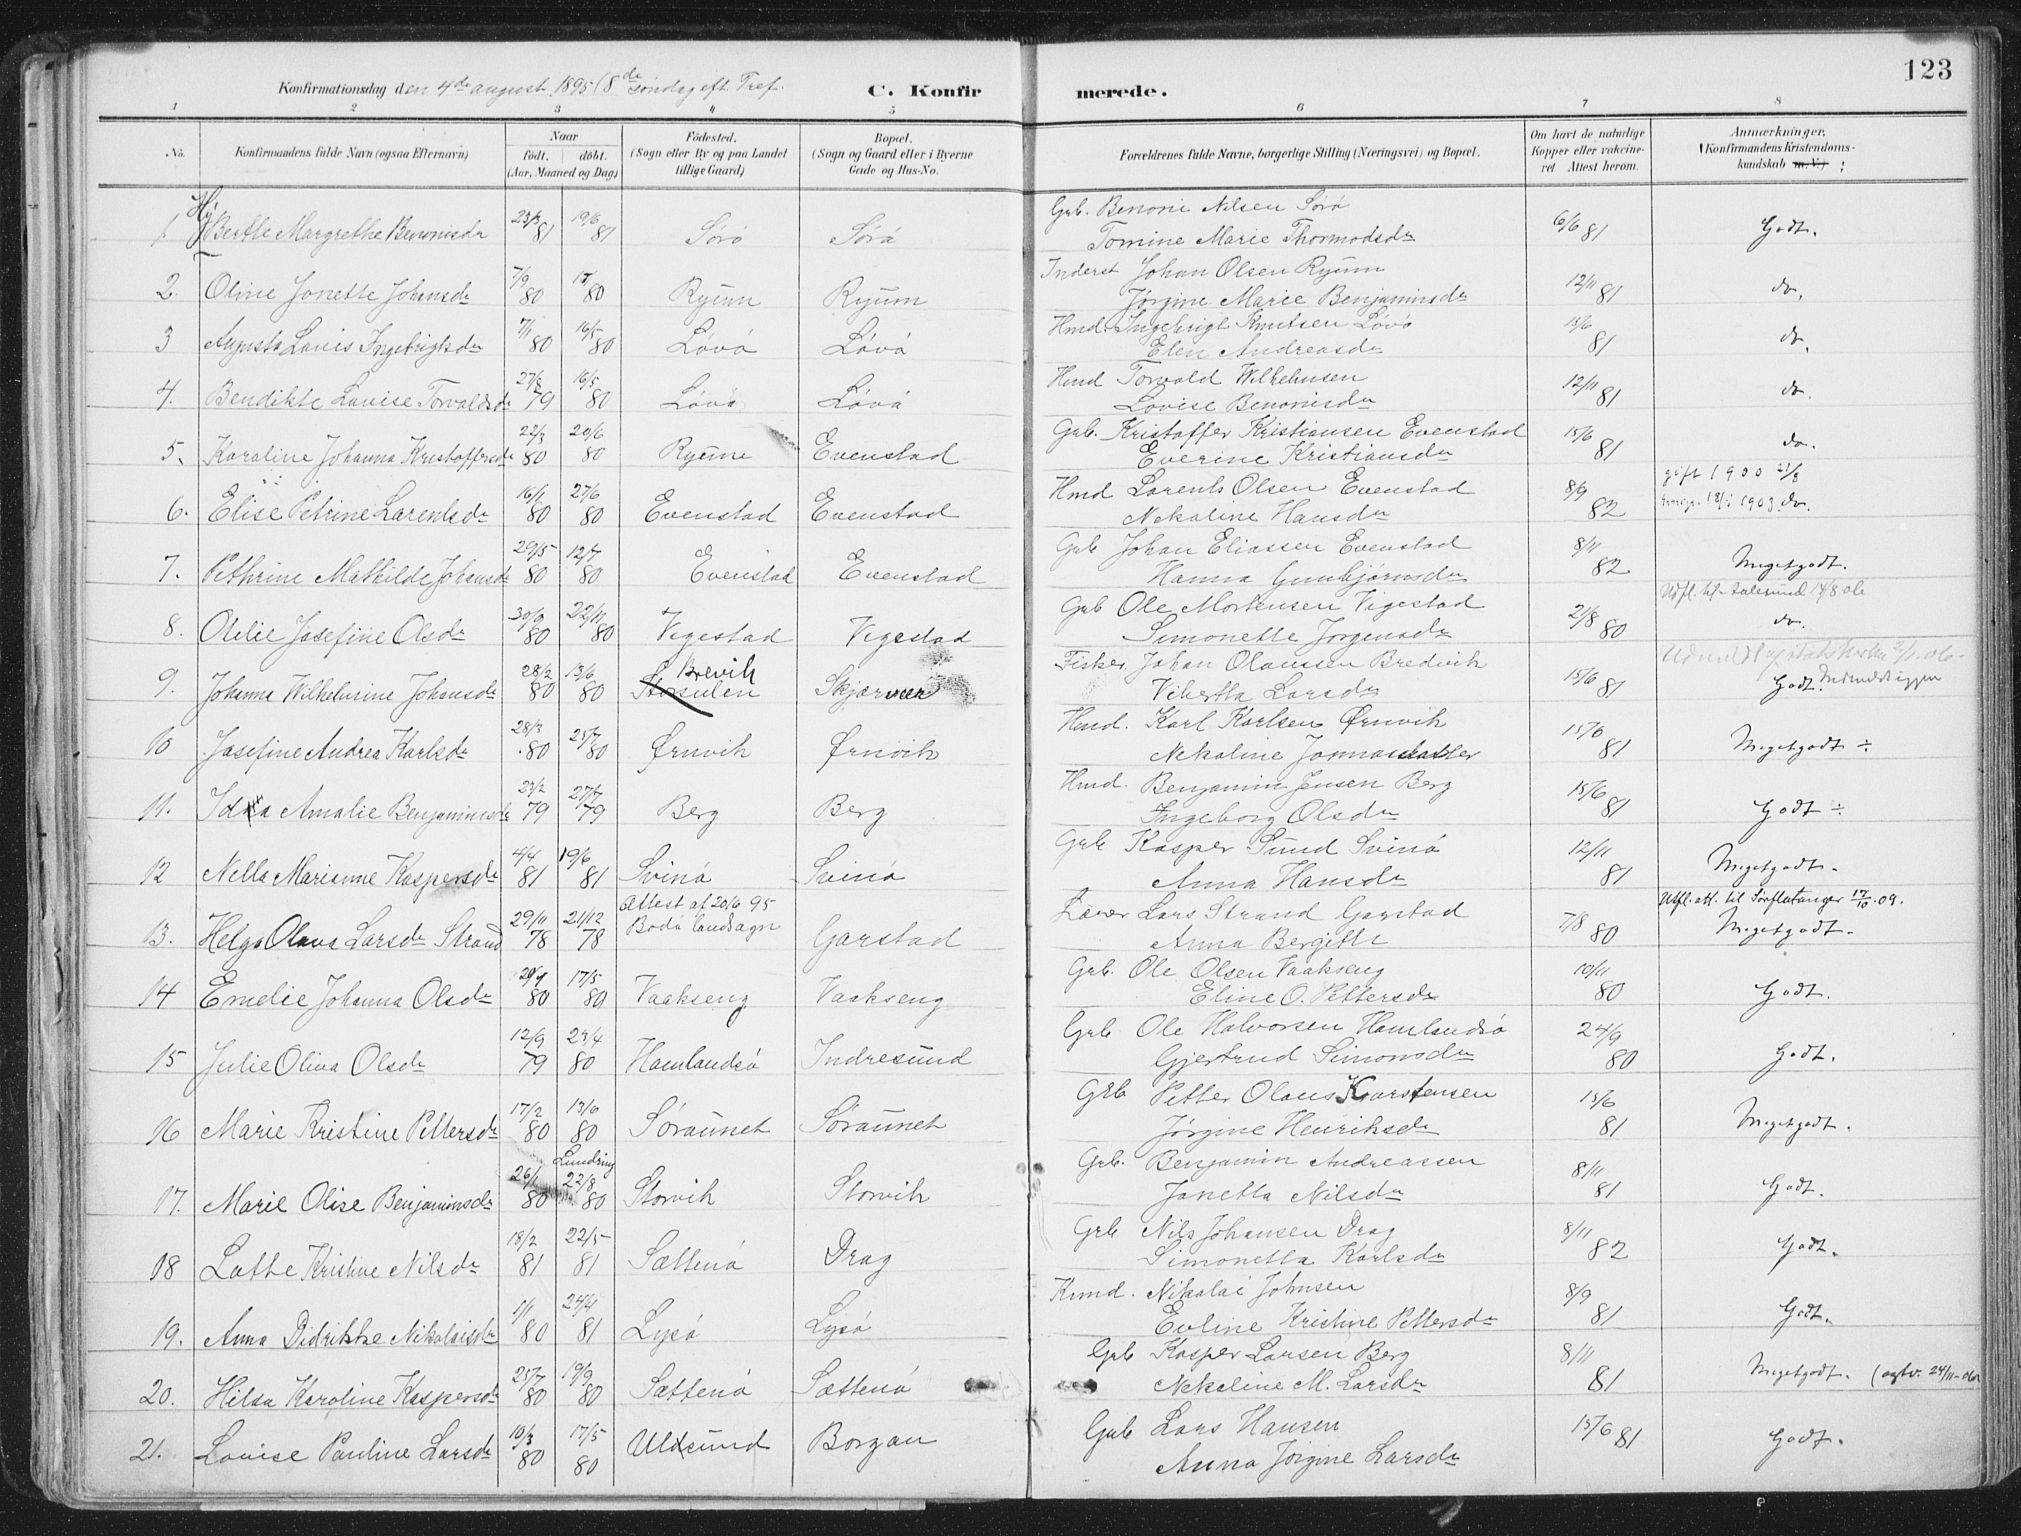 123
Konfirmationsdag den 4de august 1895 (8de søndag eft. Tref.
C. Konfirmerede.
1 2 3 4 5 6 7 8
No. Konfirmandens fulde Navn (ogsaa Efternavn) Naar født. døbt. (Aar, Maaned og Dag) Fødested. (Sogn eller By og paa Landet tillige Gaard) Bopæl. (Sogn og Gaard eller i Byerne Gade og Hus-No. Forældrenes fulde Navne, borgerlige Stilling (Næringsvei) og Bopæl. Om havt de naturlige Kopper eller vakcineret Attest herom. Anmærkninger, (Konfirmandens Kristendomskundskab m.V.) :
1 Berthe Margrethe Benonisdr 23/3 81 19/6 81 Sørø Sørø Grb. Benoni Nilsen Sørø
Tomine Marie Thormodsdr 6/6 81 Godt.
2. Oline Jonette Johansdr 7/9 80 80 Ryum Ryum Inderst Johan Olsen Ryum
Jørgine Marie Benjaminsdr 12/11 81 do.
3 Augusta Lovis Ingebrigtsdr 7/1 80 16/5 80 Løvø Løvø Hmd. Ingebrigt Knutsen Løvø
Elen Andreasdr 15/6 81 do.
4. Bendikte Lovise Torvaldsdr 27/8 79 16/5 80 Løvø Løvø Hmd Torvald Wilhelmsen
Lovise Benonisdr 12/11 81 do.
5. Karoline Johanna Kristoffersdr 22/3 80 20/6 80 Ryum Evenstad Grb. Kristoffer Kristiansen Evenstad
Everine Kristiansdr 15/6 81 do.
6. Elise Petrine Larentsdr 16/1 80 27/6 80 Evenstad Evenstad Hmd Larents Olsen Evenstad
Nekoline Hansdr 8/9 82 gift 1900 21/8
1903. do.
7. Pethrine Mathilde Johansdr 29/5 80 12/7 80 Evenstad Evenstad Grb Johan Eliassen Evenstad
Hanna Gunbjørnsdr 8/11 82 Megetgodt.
8. Otelie Josefine Olsdr 30/9 80 22/11 80 Vegestad Vegestad Grb Ole Mortensen Vigestad
Simonette Jørgensdr 21/8 80 Udfl. til Aalesund 14/8 06
do.
9. Johanna Wilhelmine Johansdr 28/2 80 13/6 80 Brevik Skjærvær Fisker Johan Olaussen Bredvik
Vibertta Larsdr 15/6 81 Godt.
10 Josefine Andrea Karlsdr 28/3 80 25/7 80 Ørnvik Ørnvik Hmd. Karl Karlsen Ørnvik
Nekoline Jonnasdatter 15/6 81 Megetgodt ÷
11. Ida Amalie Benjaminsdr 23/2 79 27/7 79 Berg Berg Hmd. Benjamin Jensen Berg
Ingeborg Olsdr 15/6 81 Godt ÷
12 Nella Marianne Kaspersdr 4/4 81 19/6 81 Svinø Svinø Grb Kasper Sund Svinø
Anna Hansdr 12/11 81 Megetgodt.
13. Helga Olava Larsdr Strand 29/11 78 21/12 78 Attest af 20/6 95
Bodø landsogn Garstad Lærer Lars Strand Garstad
Anna Bergitte 7/8 80 Utfl. att. til Sørflatanger 17/10.09.
Megetgodt.
14 Emelie Johanna Olsdr 80 17/5 80 Vaakseng Vaakseng Grb. Ole Olsen Vaakseng
Eline O. Pettersdr 10/11 80 Godt.
15 Julie Oliva Olsdr 12/9 79 23/4 80 Hamlandsø Indresund Grb Ole Halvorsen Hamlandsø
Gjertrud Simonsdr 24/9 80 Godt.
16 Marie Kristine Pettersdr 17/2 80 13/6 80 Søraunet Søraunet Grb Petter Olaus Karstensen
Jørgine Henriksdr 15/6 81 Megetgodt.
17. Marie Olise Benjaminsdr 26/1 80 22/8 80 Storvik Storvik Grb. Benjamin Andreassen
Janetta Nilsdr 8/11 81 Godt.
18 Lotte Kristine Nilsdr 18/2 81 22/5 81 Sættenø Drag Grb Nils Johansen Drag
Simonetta Karlsdr 8/11 82 Godt.
19. Anna Didrikke Nikolaisdr 1/1 80 24/4 81 Lysø Lysø Kmd. Nikolai Johnsen
Evline Kristine Pettersdr 8/9 81 Godt.
20. Hilda Karoline Kaspersdr 25/7 80 19/9 80 Sættenø Sættenø Grb Kasper Larsen Berg
Nekoline M. Larsdr 8/11 81 Megetgodt. (egtv. 24/11-06
21. Lovise Pauline Larsdr 10/3 80 17/5 80 Uldsund Borgan Grb Lars Hansen
Anna Jørgine Larsdr 15/6 81 Godt.